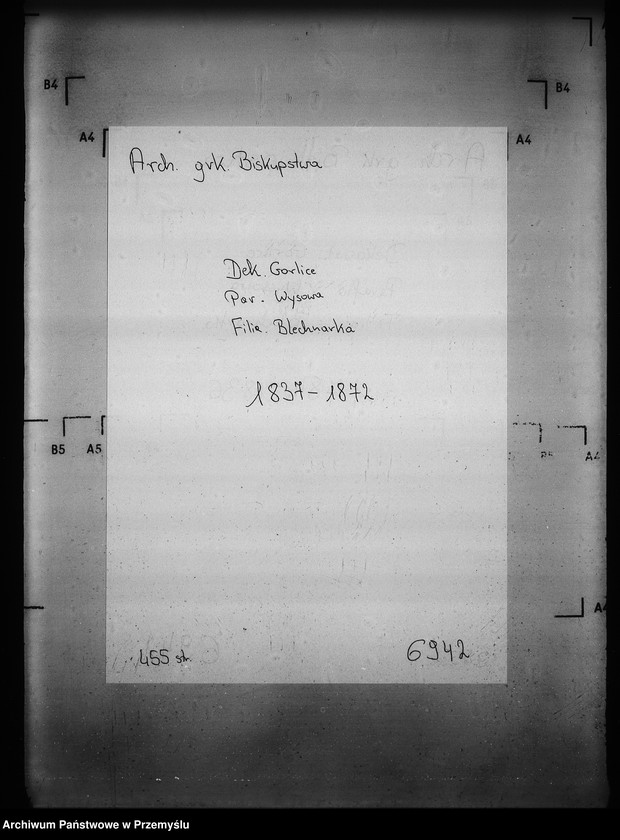 B4
B4
A4
A4
Arch. grk. Biskupstwa
Dek. Gorlice
Par. Wysowa
Filia. Blechnarka
1837-1872
B5
A5
B5
A4
A4
455 str.
6942
Archiwum Państwowe w Przemyślu